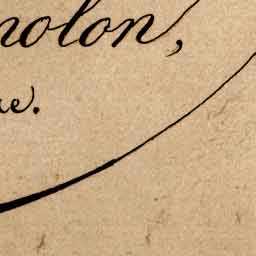 nolon,
ue.